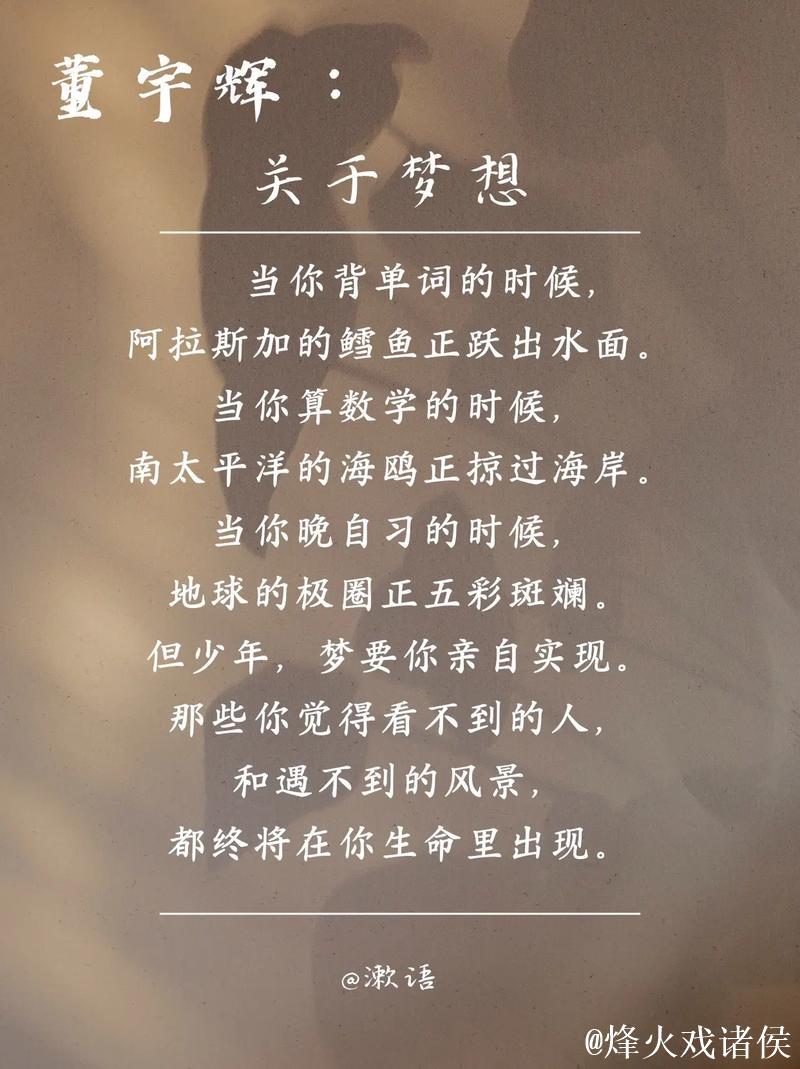 董宇辉：
关于梦想
当你背单词的时候，
阿拉斯加的鳕鱼正跃出水面。
当你算数学的时候，
南太平洋的海鸥正掠过海岸。
当你晚自习的时候，
地球的极圈正五彩斑斓。
但少年，梦要你亲自实现。
那些你觉得看不到的人，
和遇不到的风景，
都终将在你生命里出现。
@漱语
@烽火戏诸侯